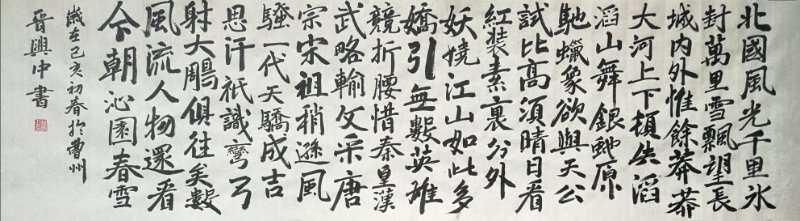 北國風光千里冰
封萬里雪飄望長
城内外惟餘莽莽
大河上下頓失滔
滔山舞銀虵原
馳蠟象欲與天公
試比高須晴日看
紅裝素裹分外
妖嬈江山如此多
嬌引無數英雄
競折腰惜秦皇漢
武略輸文采唐
宗宋祖稍遜風
騷一代天驕成吉
思汗祇識彎弓
射大鵰俱往矣數
風流人物還看
今朝沁園春雪
歲在己亥初春於曹州
晋興中書